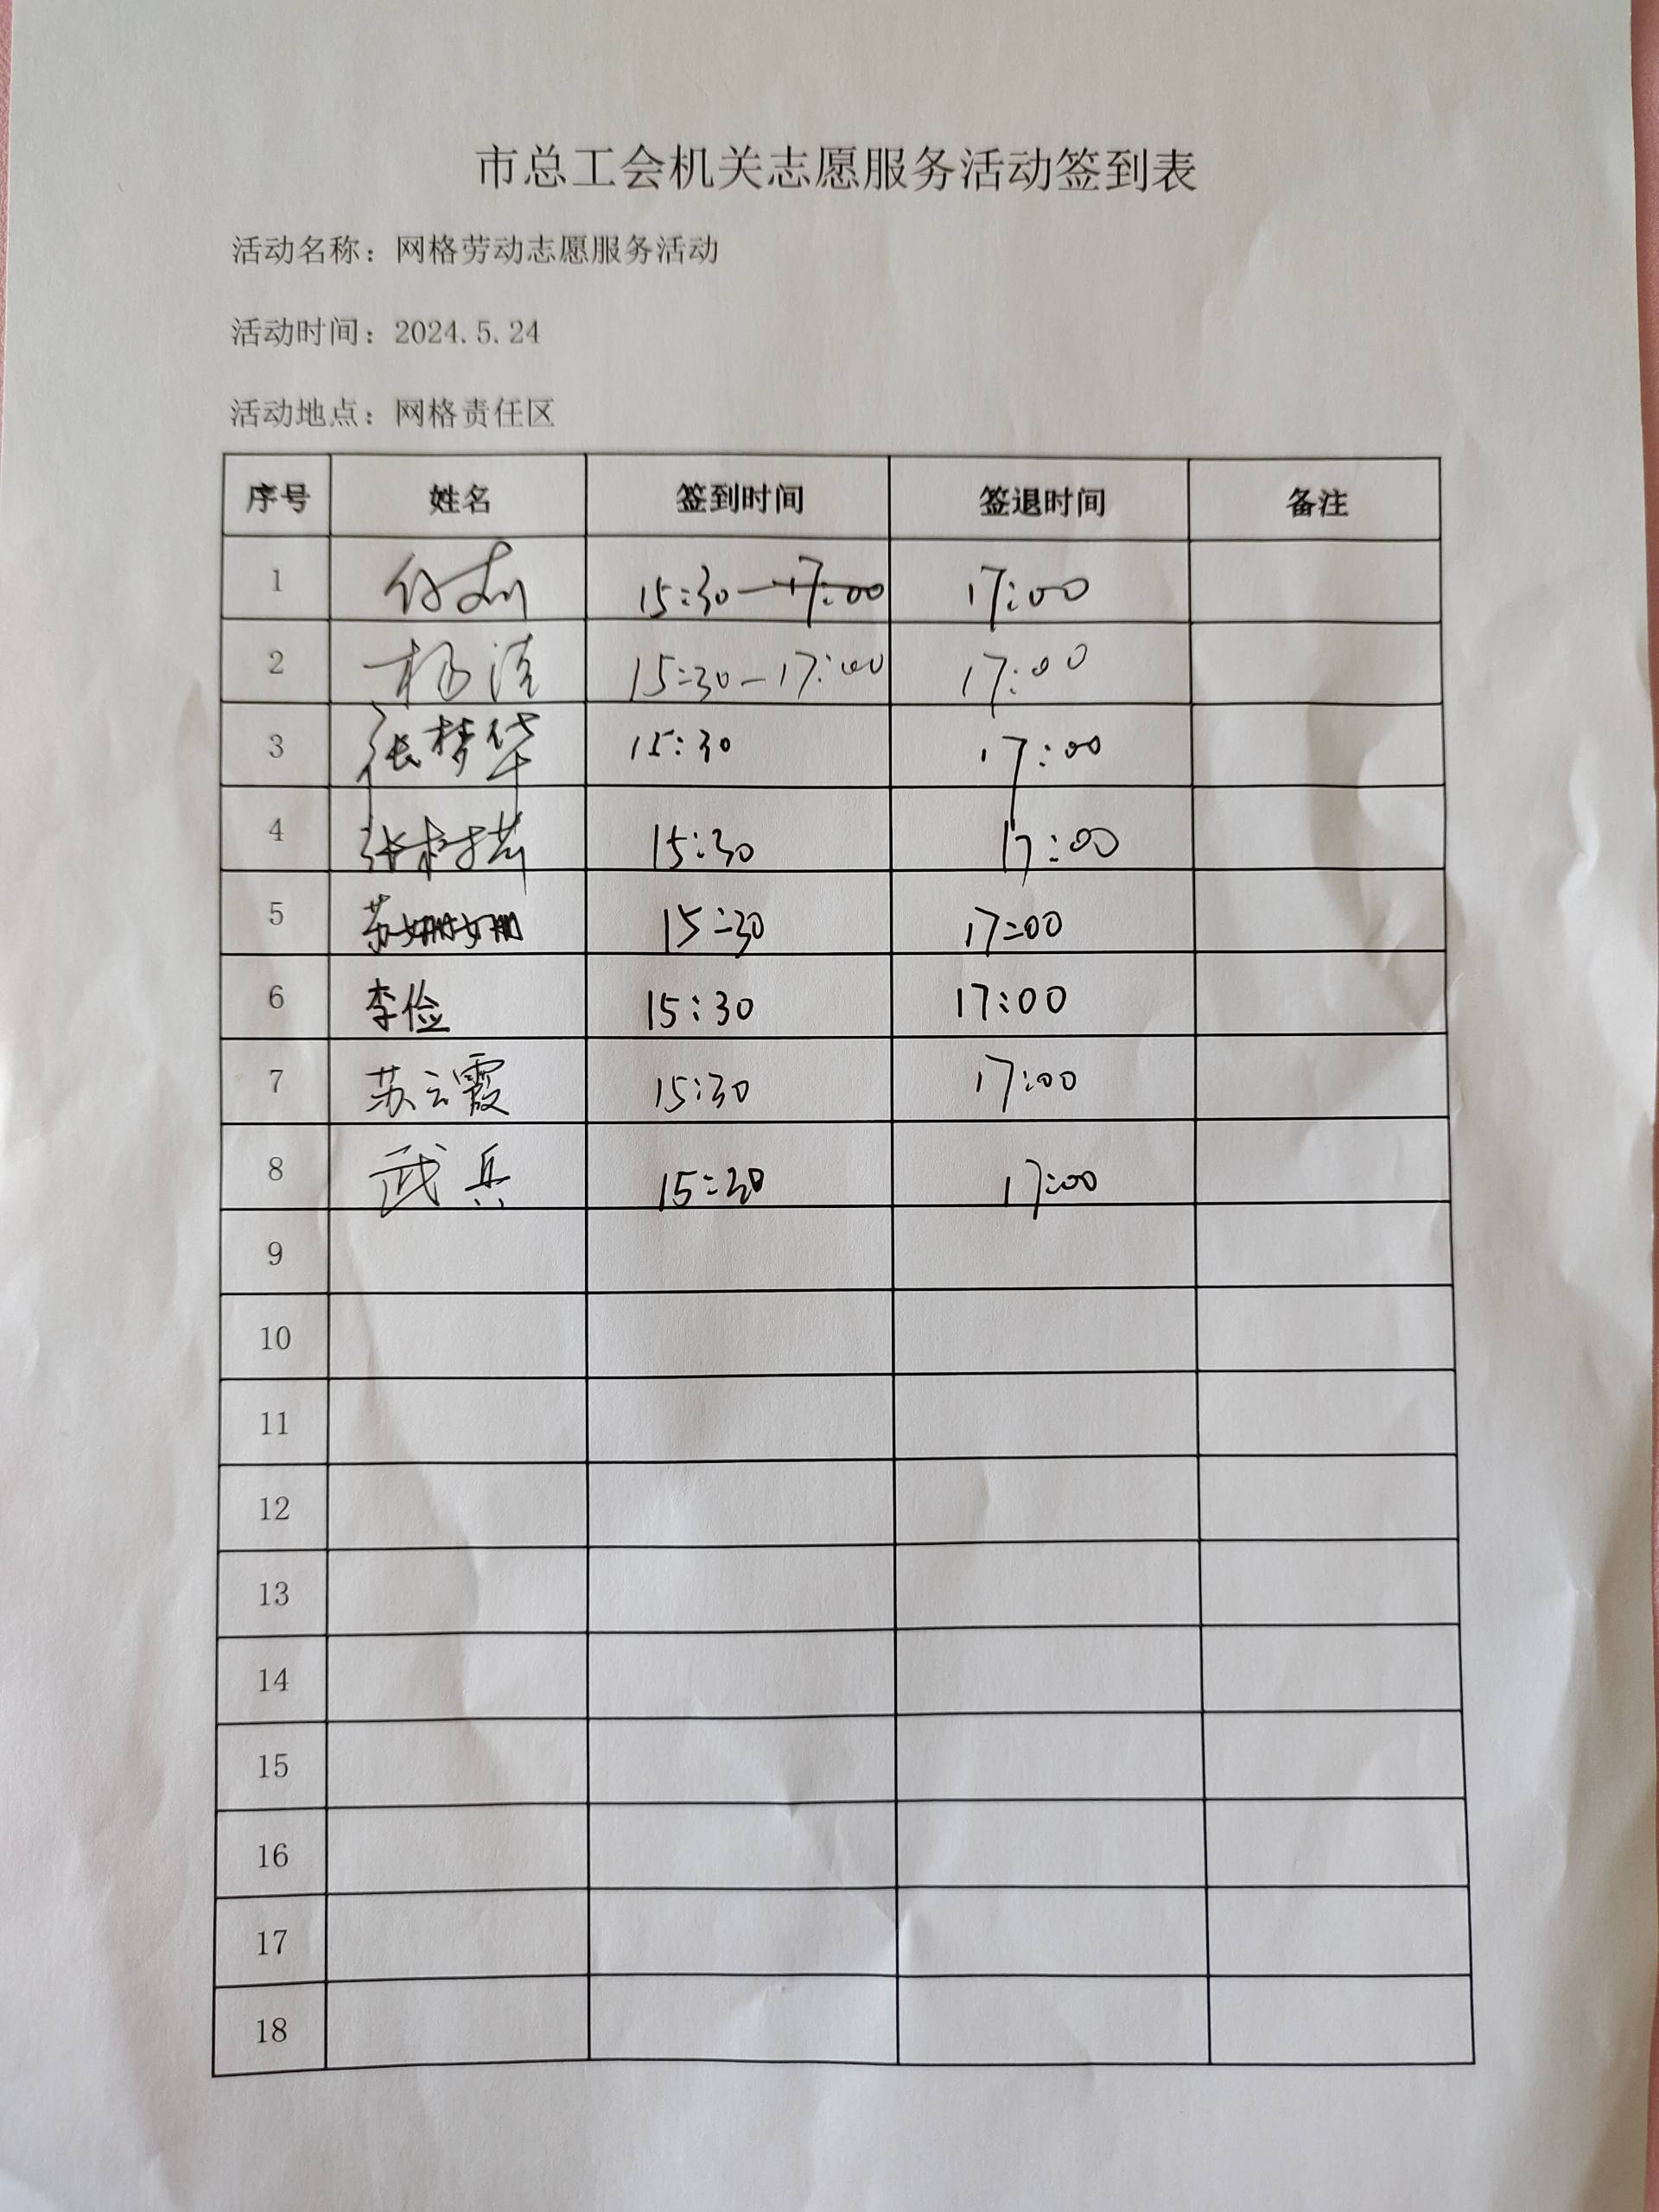 市总工会机关志愿服务活动签到表
活动名称：网格劳动志愿服务活动
活动时间：2024.5.24
活动地点：网格责任区
序号 姓名 签到时间 签退时间 备注
1 15:30—17:00 17:00
2 杨洁 15:30—17:00 17:00
3 张梦华 15:30 17:00
4 张树 15:30 17:00
5 苏姗姗 15:30 17:00
6 李俭 15:30 17:00
7 苏云霞 15:30 17:00
8 武兵 15:30 17:00
9
10
11
12
13
14
15
16
17
18